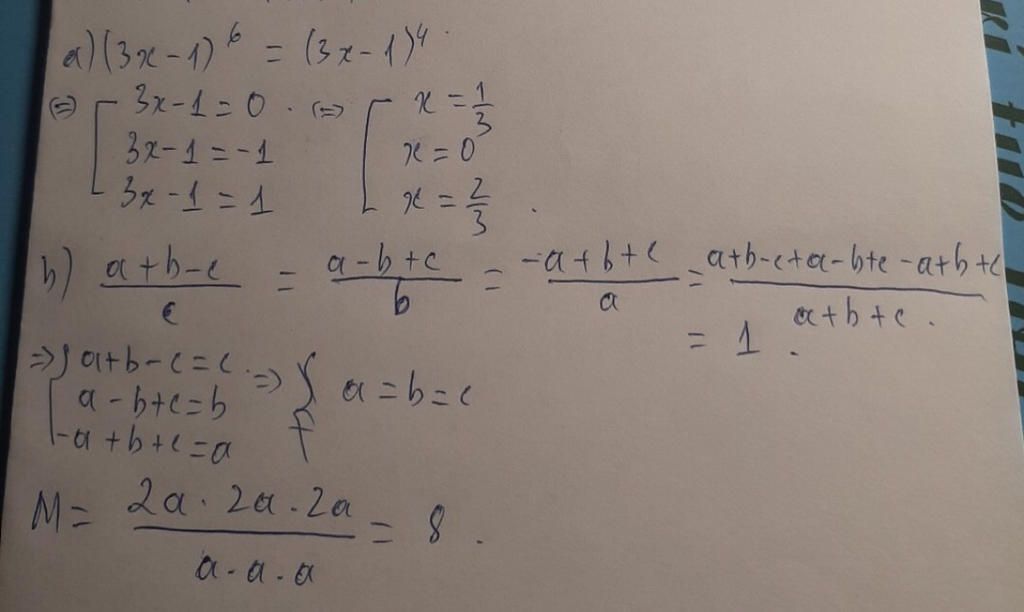 a) (3x-1)^6 = (3x-1)^4.
<=> [ 3x-1=0 . <=> [ x = 1/3
3x-1=-1 x=0
3x-1=1 x = 2/3 .
b) (a+b-c)/c = (a-b+c)/b = (-a+b+c)/a = (a+b-c+a-b+c-a+b+c)/(a+b+c) .
= 1 .
=> { a+b-c=c . => { a=b=c
a-b+c=b
-a+b+c=a
M = (2a . 2a . 2a)/(a . a . a) = 8 .